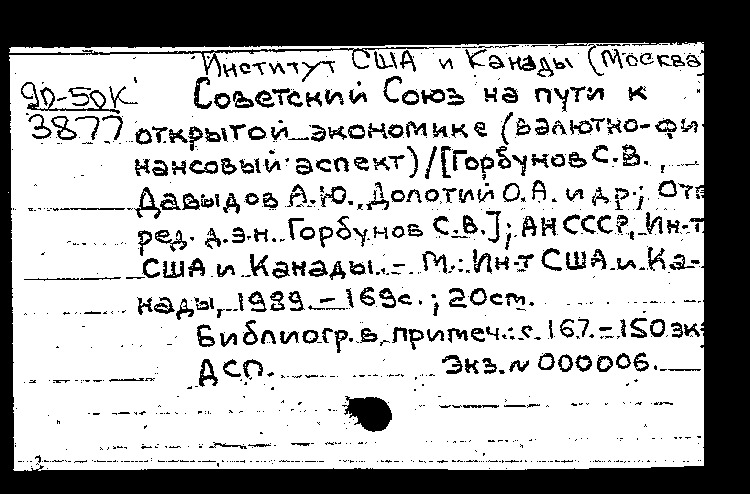 Институт США и Канады (Москва)
90-50К Советский Союз на пути к
3877 открытой экономике (валютно-фи-
нансовый аспект)/[Горбунов С.В.,
Давыдов А.Ю., Долотий О.А. и др.; Отв
ред. д.э.н. Горбунов С.В.]; АН СССР, Ин-т
США и Канады. - М.: Ин-т США и Ка-
нады, 1989. - 169с.; 20см.
Библиогр. в примеч.: с. 167. - 150 экз
ДСП. Экз. № 000006.